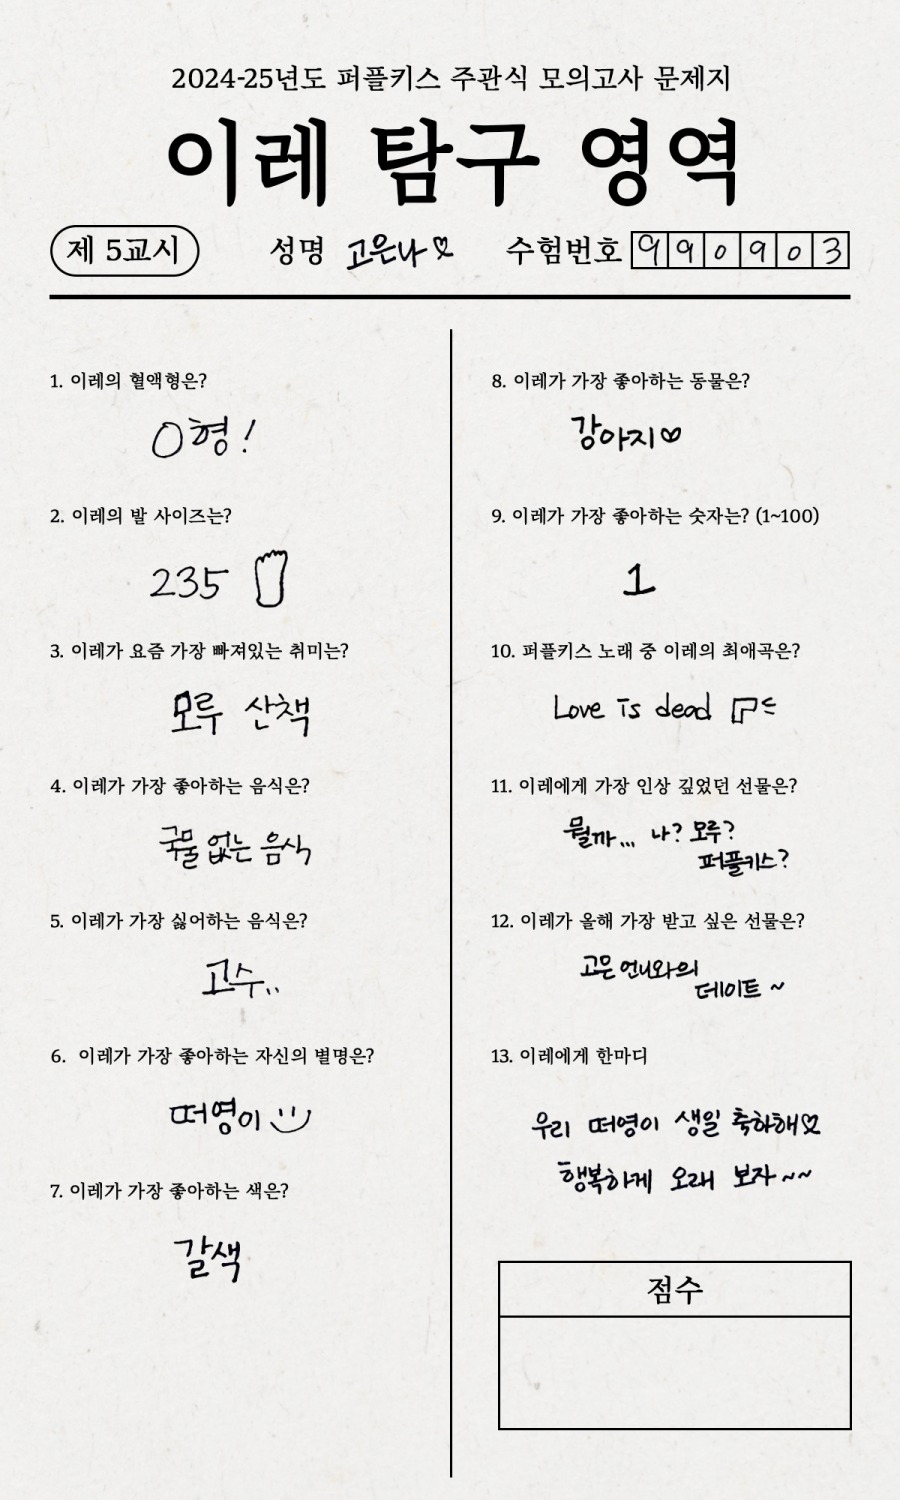 2024-25년도 퍼플키스 주관식 모의고사 문제지
이레 탐구 영역
제 5교시
성명 고은나♡
수험번호 990903
1. 이레의 혈액형은?
O형!
2. 이레의 발 사이즈는?
235
3. 이레가 요즘 가장 빠져있는 취미는?
모루 산책
4. 이레가 가장 좋아하는 음식은?
국물 없는 음식
5. 이레가 가장 싫어하는 음식은?
고수..
6. 이레가 가장 좋아하는 자신의 별명은?
떠영이
7. 이레가 가장 좋아하는 색은?
갈색
8. 이레가 가장 좋아하는 동물은?
강아지♡
9. 이레가 가장 좋아하는 숫자는? (1~100)
1
10. 퍼플키스 노래 중 이레의 최애곡은?
Love is dead
11. 이레에게 가장 인상 깊었던 선물은?
뭘까... 나? 모루?
퍼플키스?
12. 이레가 올해 가장 받고 싶은 선물은?
고은 언니와의
데이트 ~
13. 이레에게 한마디
우리 떠영이 생일 축하해♡
행복하게 오래 보자~~
점수